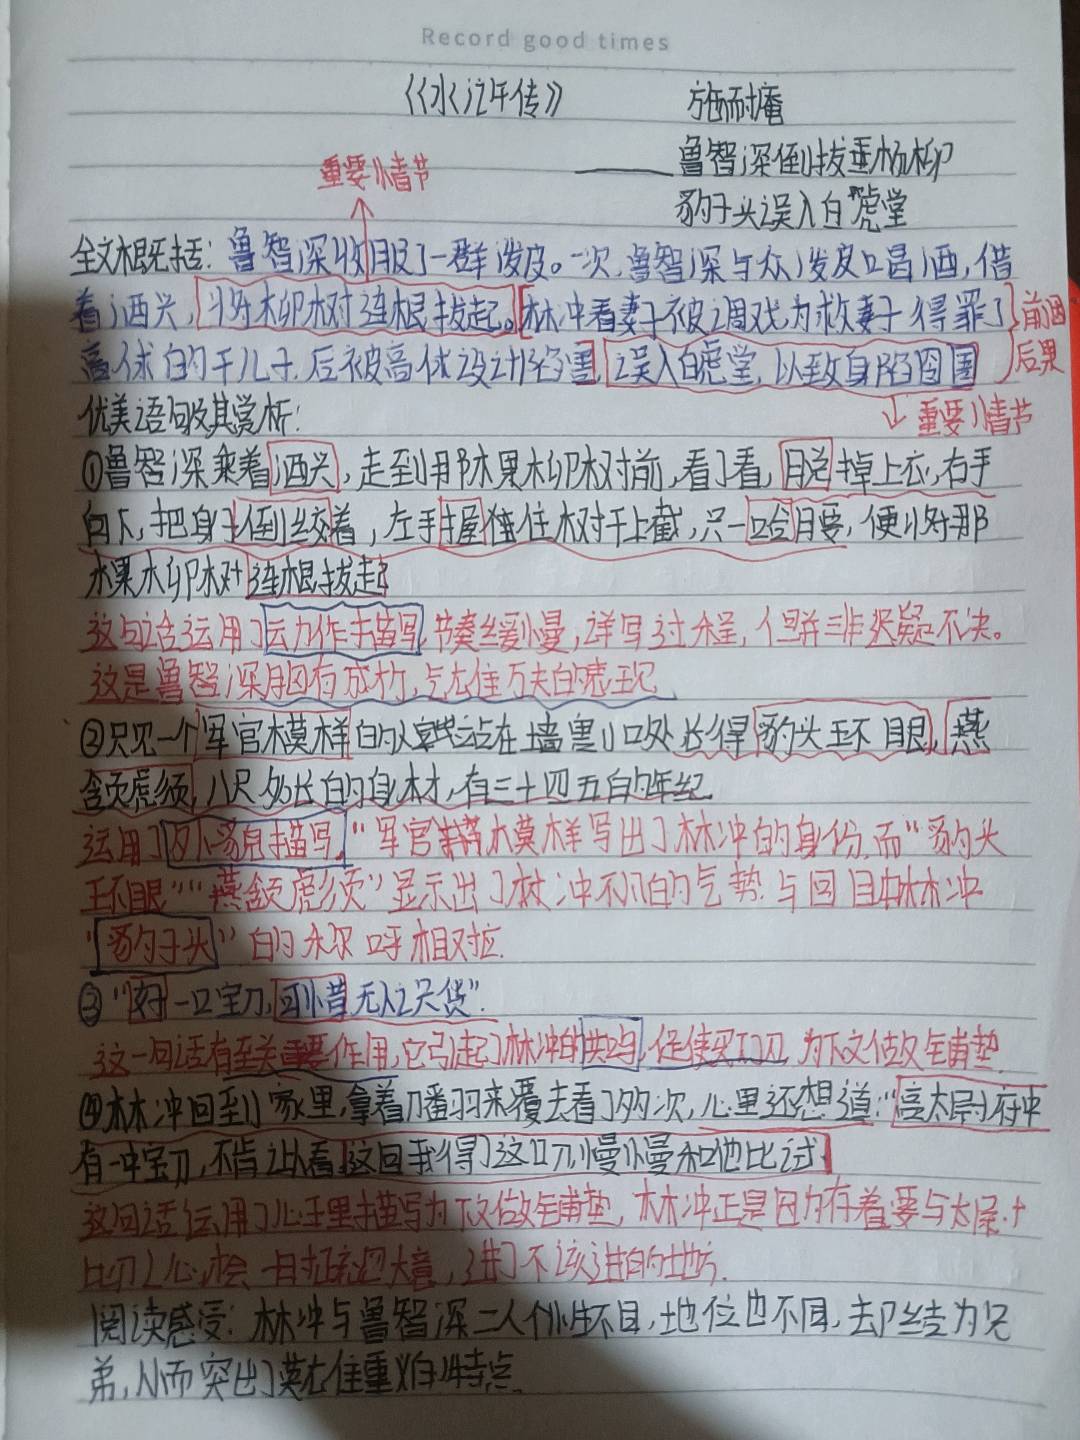 Record good times
《水浒传》 施耐庵
重要情节 —— 鲁智深倒拔垂杨柳
豹子头误入白虎堂
全文概括：鲁智深收服了一群泼皮。一次，鲁智深与众泼皮喝酒，借
着酒兴，将柳树连根拔起。林冲看妻子被调戏为救妻子得罪了 前因
高俅的干儿子.后被高俅设计陷害，误入白虎堂，以致身陷囹圄 后果
优美语句及其赏析： 重要情节
①鲁智深乘着酒兴，走到那棵柳树前，看了看，脱掉上衣，右手
向下，把身子倒缴着，左手握住树干上截，只一哈腰，便将那
棵柳树连根拔起
这句话运用了动作描写，节奏缓慢，详写过程，但并非迟疑不决。
这是鲁智深胸有成竹，气壮万夫的表现
②只见一个军官模样的人站在墙里口处长得豹头环眼，燕
颔虎须，八尺多长的身材，有三十四五的年纪
运用了外貌描写，"军官模样写出了林冲的身份，而"豹头
环眼""燕颔虎须"显示出了林冲不凡的气势与回目中林冲
"豹子头"的称呼相对应.
③"好一口宝刀，可惜无人识货".
这一句话有至关重要作用，它引起了林冲的共鸣，促使买下刀，为下文做铺垫.
④林冲回到家里，拿着刀翻来覆去看了多次，心里还想道："高太尉府中
有一口宝刀，不肯让人看，这回我得了这口刀，慢慢和他比试
这句话运用了心理描写为下文做铺垫，林冲正是因为存着要与太尉
比刀之心，才会一时疏忽大意，进了不该进的地方.
阅读感受：林冲与鲁智深二人个性不同，地位也不同，却结为兄
弟，从而突出了英雄重义的特点.